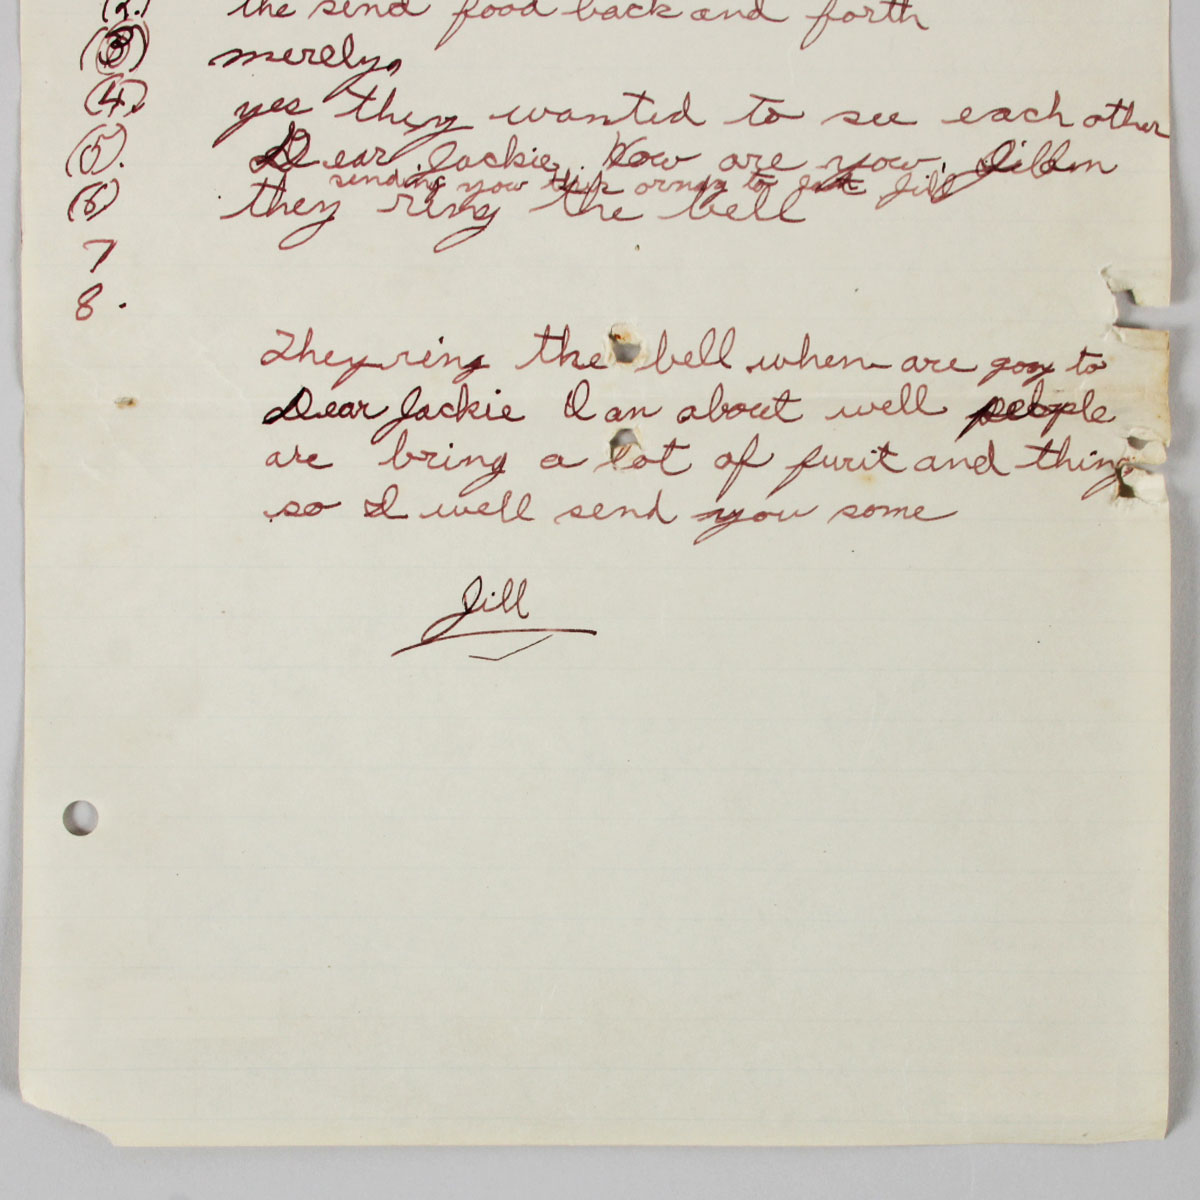 (2.) the send food back and forth
(3) merely,
(4.) yes they wanted to see each other
(5). Dear Jackie, How are you,
sending you this to Jill
(6) they ring the bell
7
8.
They ring the bell when are goog to
Dear Jackie I an about well people
are bring a lot of furit and thing
so I well send you some
Jill